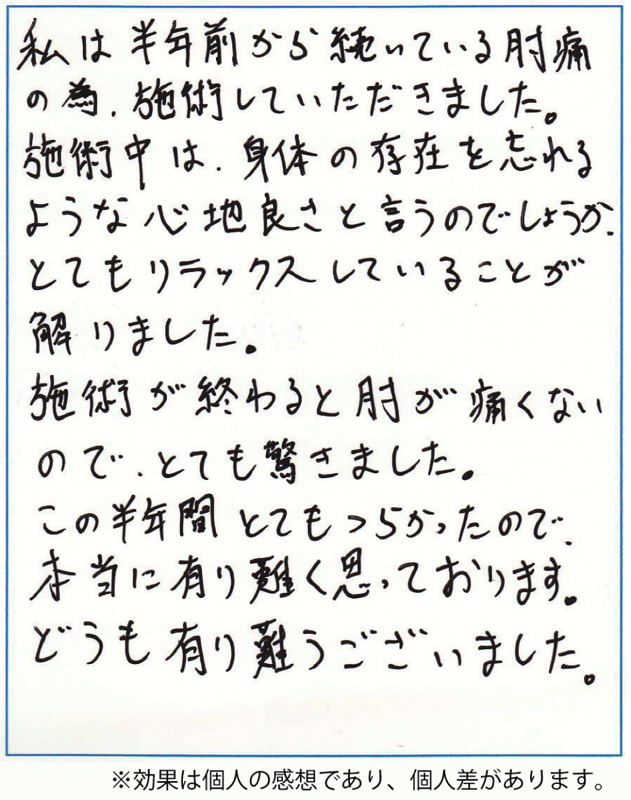 私は半年前から続いている肘痛
の為、施術していただきました。
施術中は、身体の存在を忘れる
ような心地良さと言うのでしょうか、
とてもリラックスしていることが
解りました。
施術が終わると肘が痛くない
ので、とても驚きました。
この半年間とてもつらかったので、
本当に有り難く思っております。
どうも有り難うございました。
※効果は個人の感想であり、個人差があります。